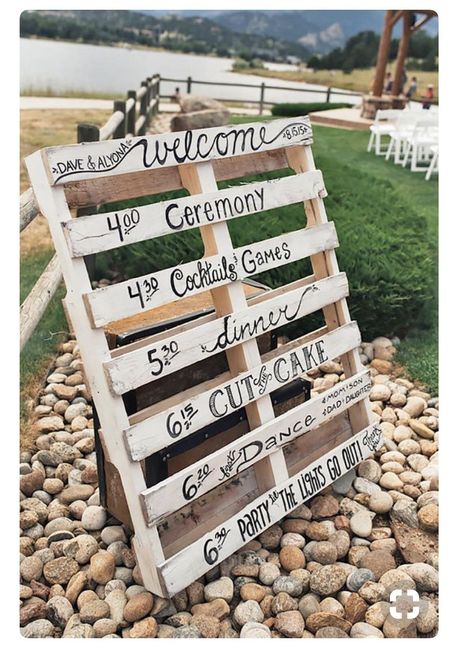 DAVE & ALYONA welcome 8.15.15
4:00 Ceremony
4:30 Cocktails & Games
5:30 dinner
6:15 CUT the CAKE
6:20 first Dance MOM & SON DAD & DAUGHTER
6:30 PARTY 'til THE LIGHTS GO OUT!